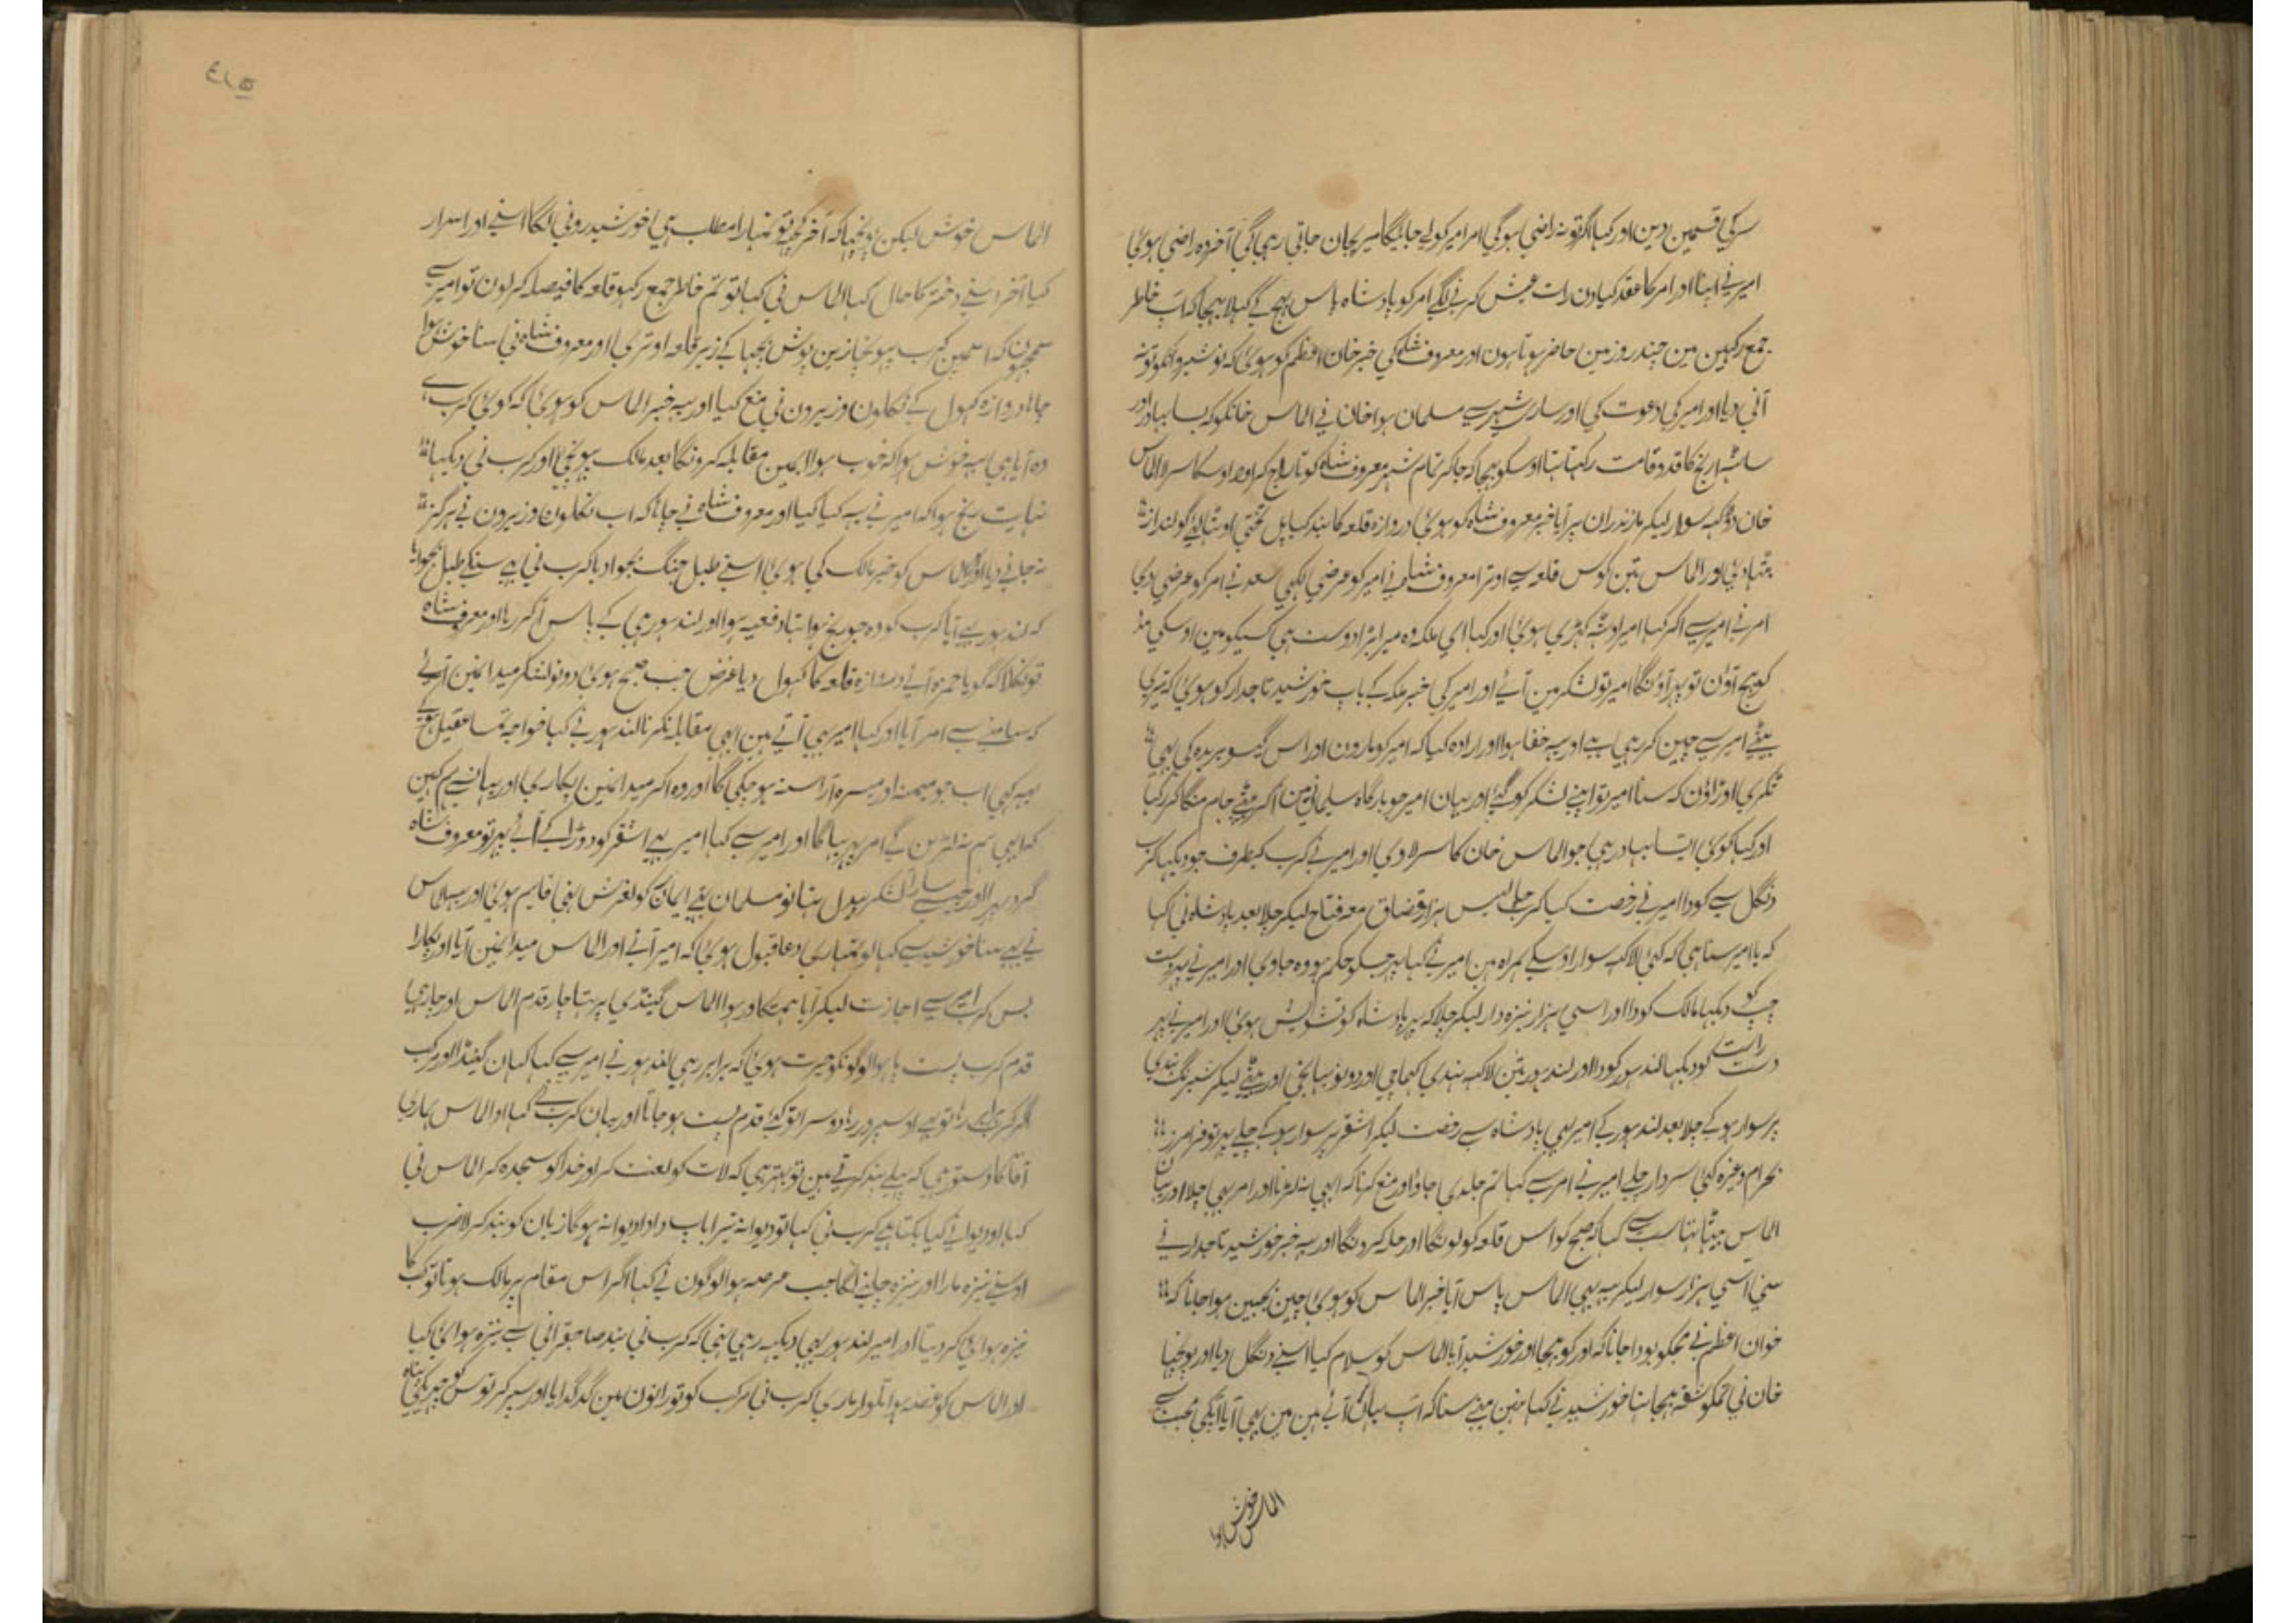 سر کی قسمین دین اور کہا اگر تو نہ راضی ہوگی امر امیر کو لے جائیگا میری جان جاتی رہی گی آخر وہ راضی ہوئی
امیر نے اپنا اور امر کا عقد کیا دن رات عیش کرنے لگے امر کو بادشاہ پاس بہیج کے کہلا بہیجا کہ آپ خاطر
جمع رکہین مین چند روز مین حاضر ہوتا ہون اور معروف شاہ کی خبر خان اعظم کو ہوئی کہ نوشیروانکو تو نہ
آنی دیا اور امیر کی دعوت کی اور ساری شہر سے مسلمان ہوا خان نے الماس خانکو کہ بہادر اور
ساٹہہ ارنج کا قد و قامت رکہتا تہا اوسکو بہیجا کہ جا کر تمام شہر معروف شاہ کو تاراج کر اور اوسکا سر لا الماس
خان دو لکہہ سوار لیکر مازندران پر آیا خبر معروف شاہ کو ہوئی دروازہ قلعہ کا بند کیا پل تختی اوٹہا لئے گولنداز
بتہا دئی اور الماس تین کوس قلعہ سے اوترا معروف شاہ نے امیر کو عرضی لکہی سعد نے امر کو عرضی دی
امر نے امیر سے آکر کہا امیر اوٹہہ کہڑی ہوئی اور کہا ای ملکہ وہ میرا بڑا دوست ہی کسیکو مین اوسکی مدد
کو بہیج آؤن تو پہر آؤنگا امیر تو لشکر مین آئے اور امیر کی خبر ملکہ کے باپ خورشید تاجدار کو ہوئی کہ تیری
بیٹے امیر سے چین کر رہی ہے اور یہ خفا ہوا اور ارادہ کیا کہ امیر کو مارون اور اس گیسو بریدہ کی بہی
ٹکری اوڑاؤن کہ سنا امیر تو اپنے لشکر کو گئے اور یہان امیر جو بارگاہ سلیمانی مین آکر بیٹہے جام منگا کر رکہا
اور کہا کوئی ایسا بہادر ہی جو الماس خان کا سر لادی اور امیر نے کرب کیطرف جو دیکہا کرب
دنگل سے کودا امیر نے رخصت کیا کرب چالیس ہزار قضاق معہ فتاح لیکر چلا بعد بادشاہ نی کہا
کہ یا امیر سنا ہی کہ کئی لاکہہ سوار اوسکے ہمراہ ہین امیر نے کہا پہر جسکو حکم ہو وہ جاوی اور امیر نے پہر دست
چپ کو دیکہا مالک کودا اور اسی ہزار نیزہ دار لیکر چلا کہ پہر بادشاہ کو تشویش ہوئی اور امیر نے پہر
دست راست کو دیکہا لندہور کودا اور لندہور تین لاکہہ ہندی اور دونو بہانجی اور بیٹے لیکر شبرنگ ہندی
پر سوار ہو کے چلا بعد لندہور کے امیر بہی بادشاہ سے رخصت لیکر اشقر پر سوار ہو کے چلے پہر تو فرامرز
بہرام وغیرہ کئی سردار چلے امیر نے امر سے کہا تم جلدی جاؤ اور منع کرنا کہ ابہی نہ لڑنا اور امر بہی چلا اور یہان
الماس بیٹہا تہا سب سے کہا کہ صبح کو اس قلعہ کو لونگا اور حملہ کرونگا اور یہ خبر خورشید تاجدار نے
سنی اسی ہزار سوار لیکر یہ بہی الماس پاس آیا خبر الماس کو ہوئی چین بجبین ہوا جانا کہ
خوان اعظم نے مجکو بودا جانا کہ اور کو بہیجا اور خورشید آیا الماس کو سلام کیا اسنے دنگل دیا اور پوچہا
خان نی تمکو بہیجا تہا خورشید نے کہا نہین مینے سنا کہ آپ یہان آئے ہین مین بہی آیا آپکی محبت سے
الماس خوش ہوا
الماس خوش لیکن پوچہا کہ آخر کچہہ تو تمہارا مطلب ہی خورشید رونی لگا اسنے اور اسرار
کیا آخر اپنے دختر کا حال کہا الماس نی کہا تو تم خاطر جمع رکہو قلعہ کا فیصلہ کر لون تو امیر سے
سمجہون کہ اسمین کرب پہونچا زین پوش بچہا کے زیر قلعہ اوتری اور معروف شاہ نی سنا خوش ہوا
چاہا دروازہ کہول کے نکلون وزیرون نی منع کیا اور یہ خبر الماس کو ہوئی کہ کوئی کرب ہے
وہ آیا ہی یہ خوش ہوا کہ خوب ہوا مین مقابلہ کرونگا بعد مالک پہونچی اور کرب نی دیکہا
نہایت رنج ہوا کہ امیر نے یہ کیا کیا اور معروف شاہ نے چاہا کہ اب نکلون وزیرون نے ہرگز
نہ جانے دیا اور الماس کو خبر مالک کی ہوئی اسنے طبل جنگ بجوا دیا کرب نی بہی سنکے طبل بجوایا
کہ لندہور بہی آیا کرب کو وہ جو رنج ہوا تہا دفعیہ ہوا اور لندہور بہی کے پاس آکر رہا اور معروف شاہ
تو نکلا کہ گویا حمزہ آئے دروازہ قلعہ کا کہول دیا غرض جب صبح ہوئی دونو لشکر میدانمین آئے
کہ سامنے سے امر آیا اور کہا امیر بہی آتے ہین ابہی مقابلہ نکرنا لندہور نے کہا خواجہ تمسا عقیل ہو کے
یہہ کہی اب جو میمنہ اور میسرہ آراستہ ہو چکی گا اور وہ آکر میدانمین پکاری اور یہانسے ہم کہین
کہ ابہی ہم نہ لڑین گے امر پہر بہاگا اور امیر سے کہا امیر بہی اشقر کو دوڑا کے آئے پہر تو معروف شاہ
گرد پہرا اور جیسے سارا لشکر بیدل تہا نو مسلمان تہے ایمان کو لغزش تہی قایم ہوئی اور الماس
نے بہی سنا خورشید سے کہا لو تمہاری دعا قبول ہوئی کہ امیر آئے اور الماس میدانمین آیا اور پکارا
بس کرب امیر سے اجازت لیکر آیا ہمتگاور ہوا الماس گینڈی پر تہا چار قدم الماس اور چارہی
قدم کرب پست پا ہوا لوگونکو حیرت ہوئی کہ برابر رہی لندہور نے امیر سے کہا کہان گینڈا اور مرکب
اگر کرکری رہا تو بہی اوسپر ور رہا دوسرا تو کئی قدم پست ہو جاتا اور یہان کرب نے کہا او الماس ہماری
آقا کا دستور ہی کہ پہلے پند کرتے ہین تو بہتر ہی کہ لات کو لعنت کر اور خدا کو سجدہ کر الماس نی
کہا او دیوانے کیا بکتا ہے کرب نی کہا تو دیوانہ تیرا باپ دادا دیوانہ ہوگا زبان کو بند کر لا ضرب
اوسنے نیزہ مارا اور نیزہ چلنے لگا جب عرصہ ہوا لوگون نے کہا اگر اس مقام پر مالک ہوتا تو کب کا
نیزہ ہوائی کر دیتا اور امیر لندہور بہی دیکہہ رہی تہی کہ کرب نی بند صاحبقرانی سے نیزہ ہوائی کیا
اور الماس کو غصہ ہوا تلوار ماری کرب نی مرکب کو تو رانون مین گدگدایا اور سپر کر توس کو چہرہ کی پناہ